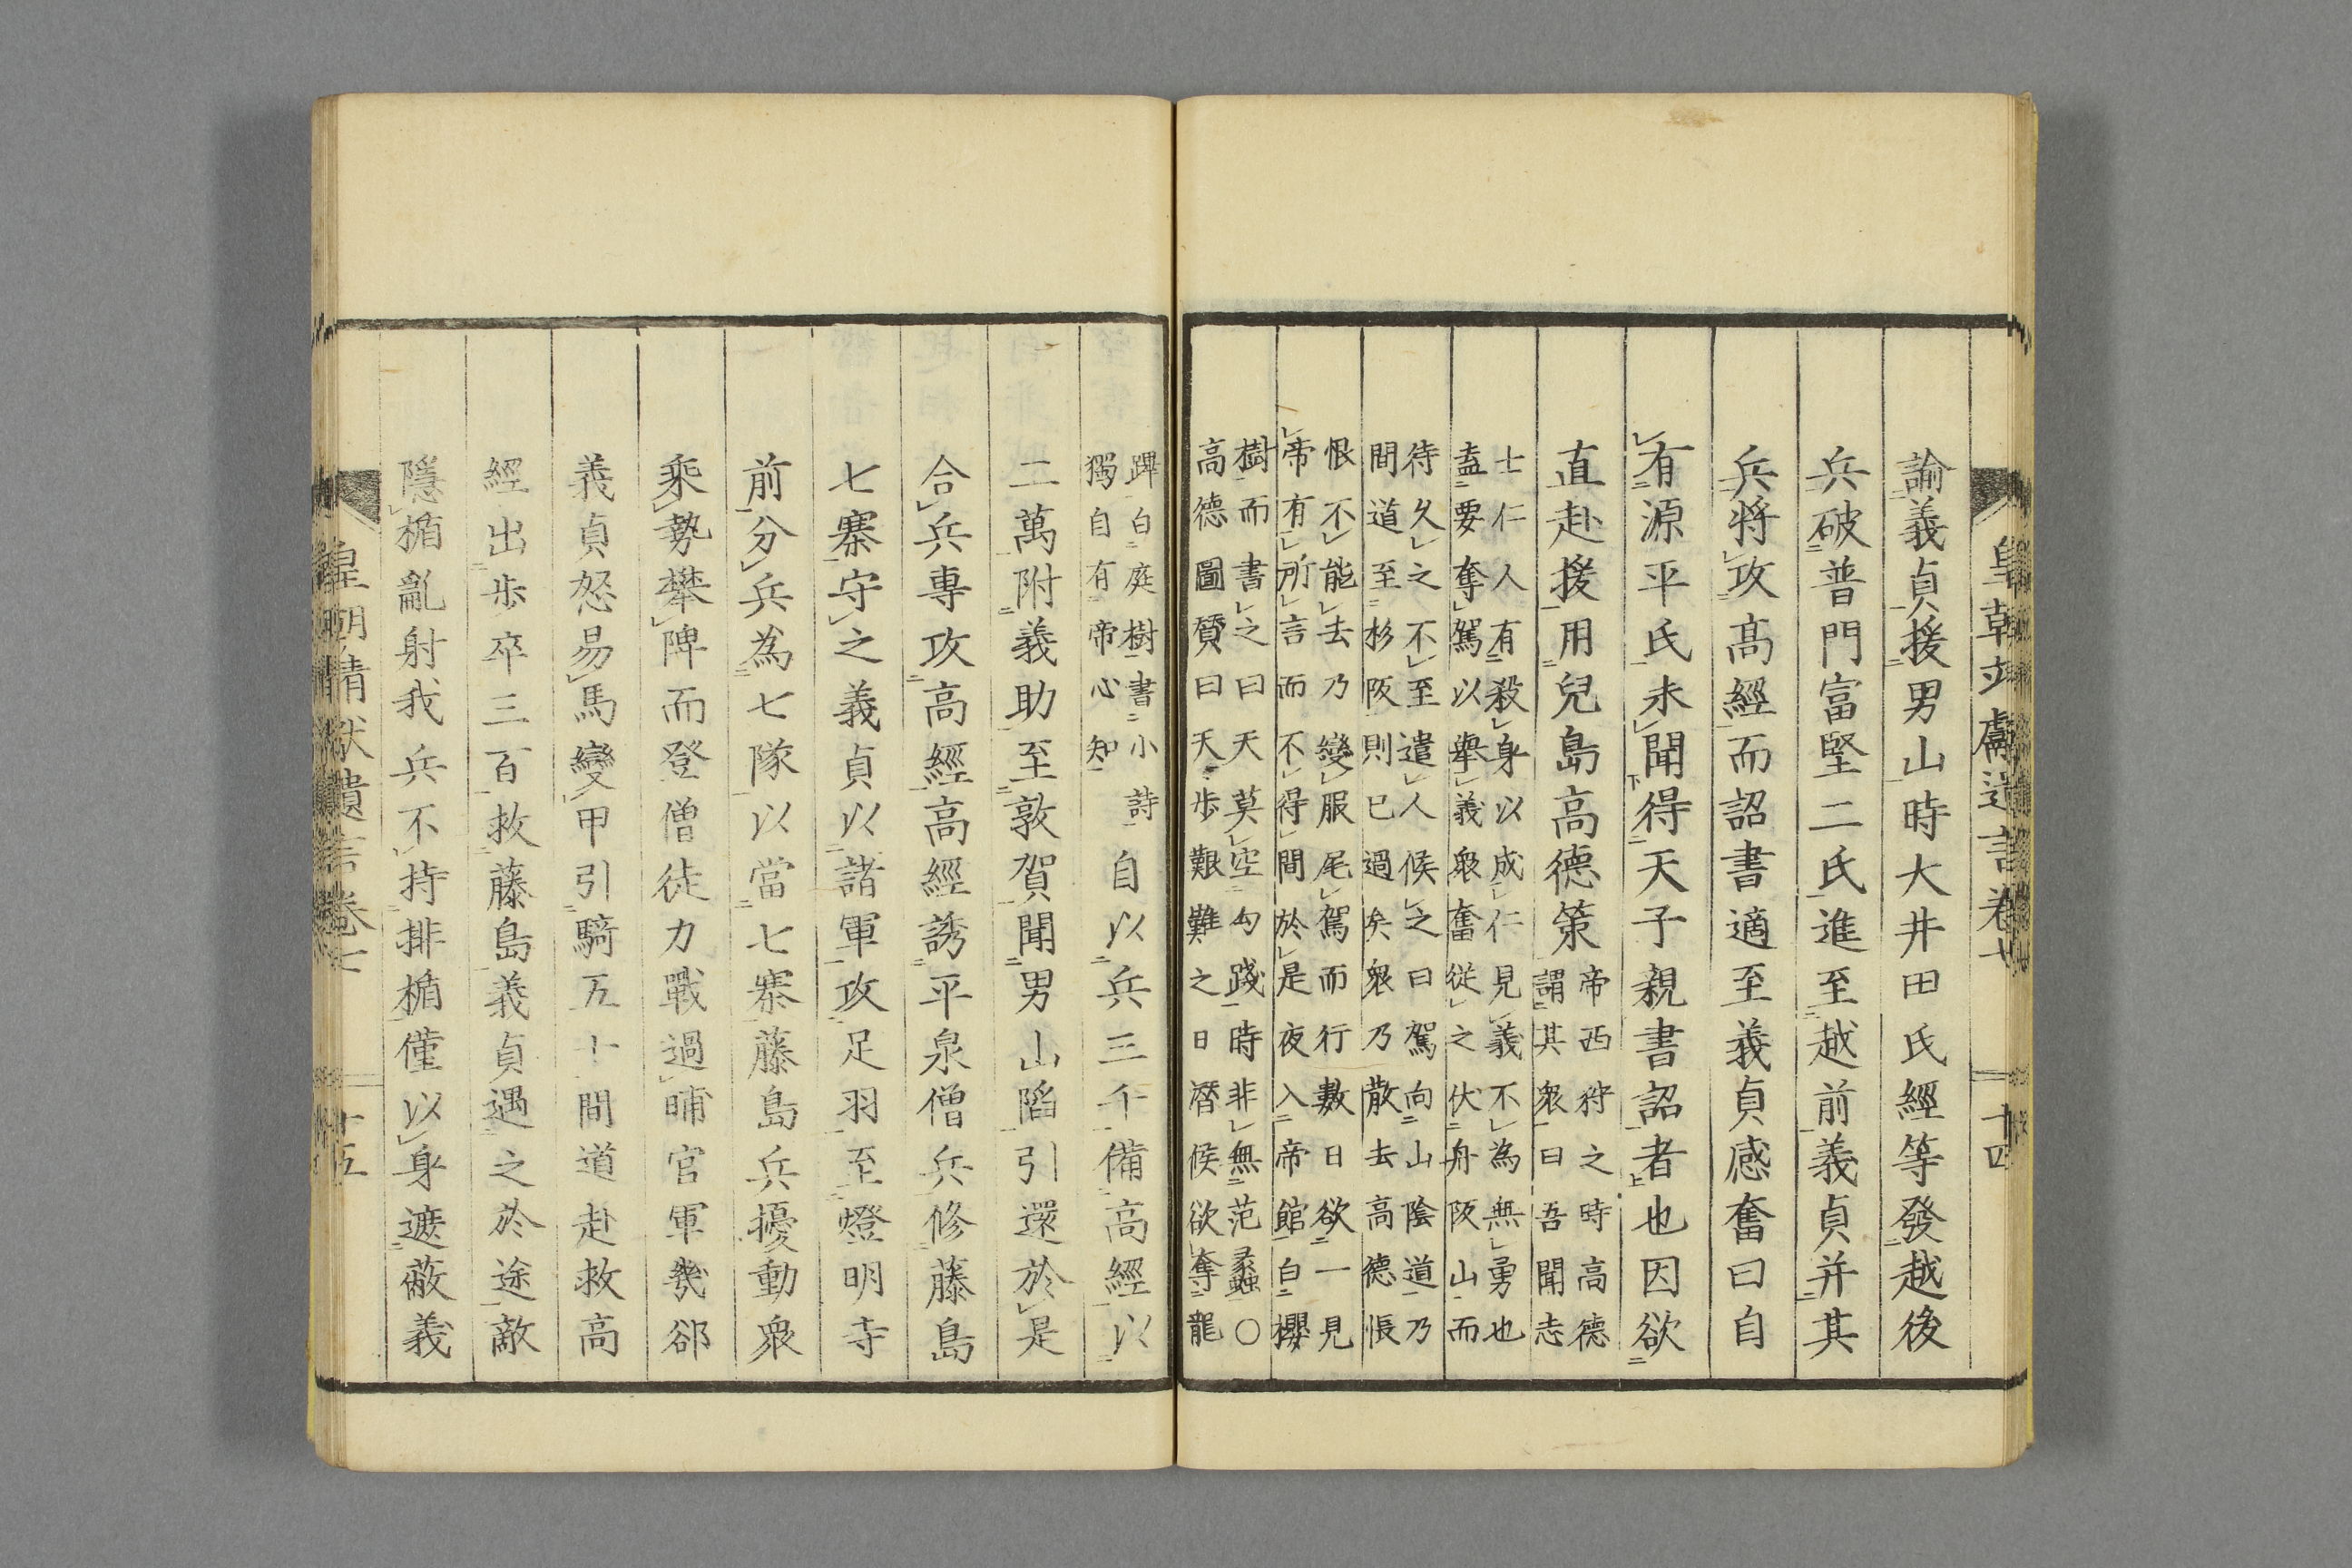 皇朝靖獻遺言卷七　十四
諭義貞援男山時大井田氏經等發越後
兵破普門富堅二氏進至越前義貞并其
兵將攻高經而詔書適至義貞感奮曰自
有源平氏未聞得天子親書詔者也因欲
直赴援用兒島高德策
帝西狩之時高德
謂其衆曰吾聞志
士仁人有殺身以成仁見義不為無勇也
盍要奪駕以舉義衆奮從之伏舟阪山而
待久之不至遣人候之曰駕向山陰道乃
間道至杉阪則已過矣衆乃散去高德悵
恨不能去乃變服尾駕而行數日欲一見
帝有所言而不得間於是夜入帝館白櫻
樹而書之曰天莫空勾踐時非無范蠡○
高德圖贊曰天步艱難之日潛候欲奪龍
蹕白庭樹書小詩
獨自有帝心知
自以兵三千備高經以
二萬附義助至敦賀聞男山陷引還於是
合兵專攻高經高經誘平泉僧兵修藤島
七寨守之義貞以諸軍攻足羽至燈明寺
前分兵為七隊以當七寨藤島兵擾動衆
乘勢攀陴而登僧徒力戰過晡官軍幾郤
義貞怒易馬變甲引騎五十間道赴救高
經出步卒三百救藤島義貞遇之於途敵
隱楯亂射我兵不持排楯僅以身遮蔽義
皇朝靖獻遺言卷七　十五